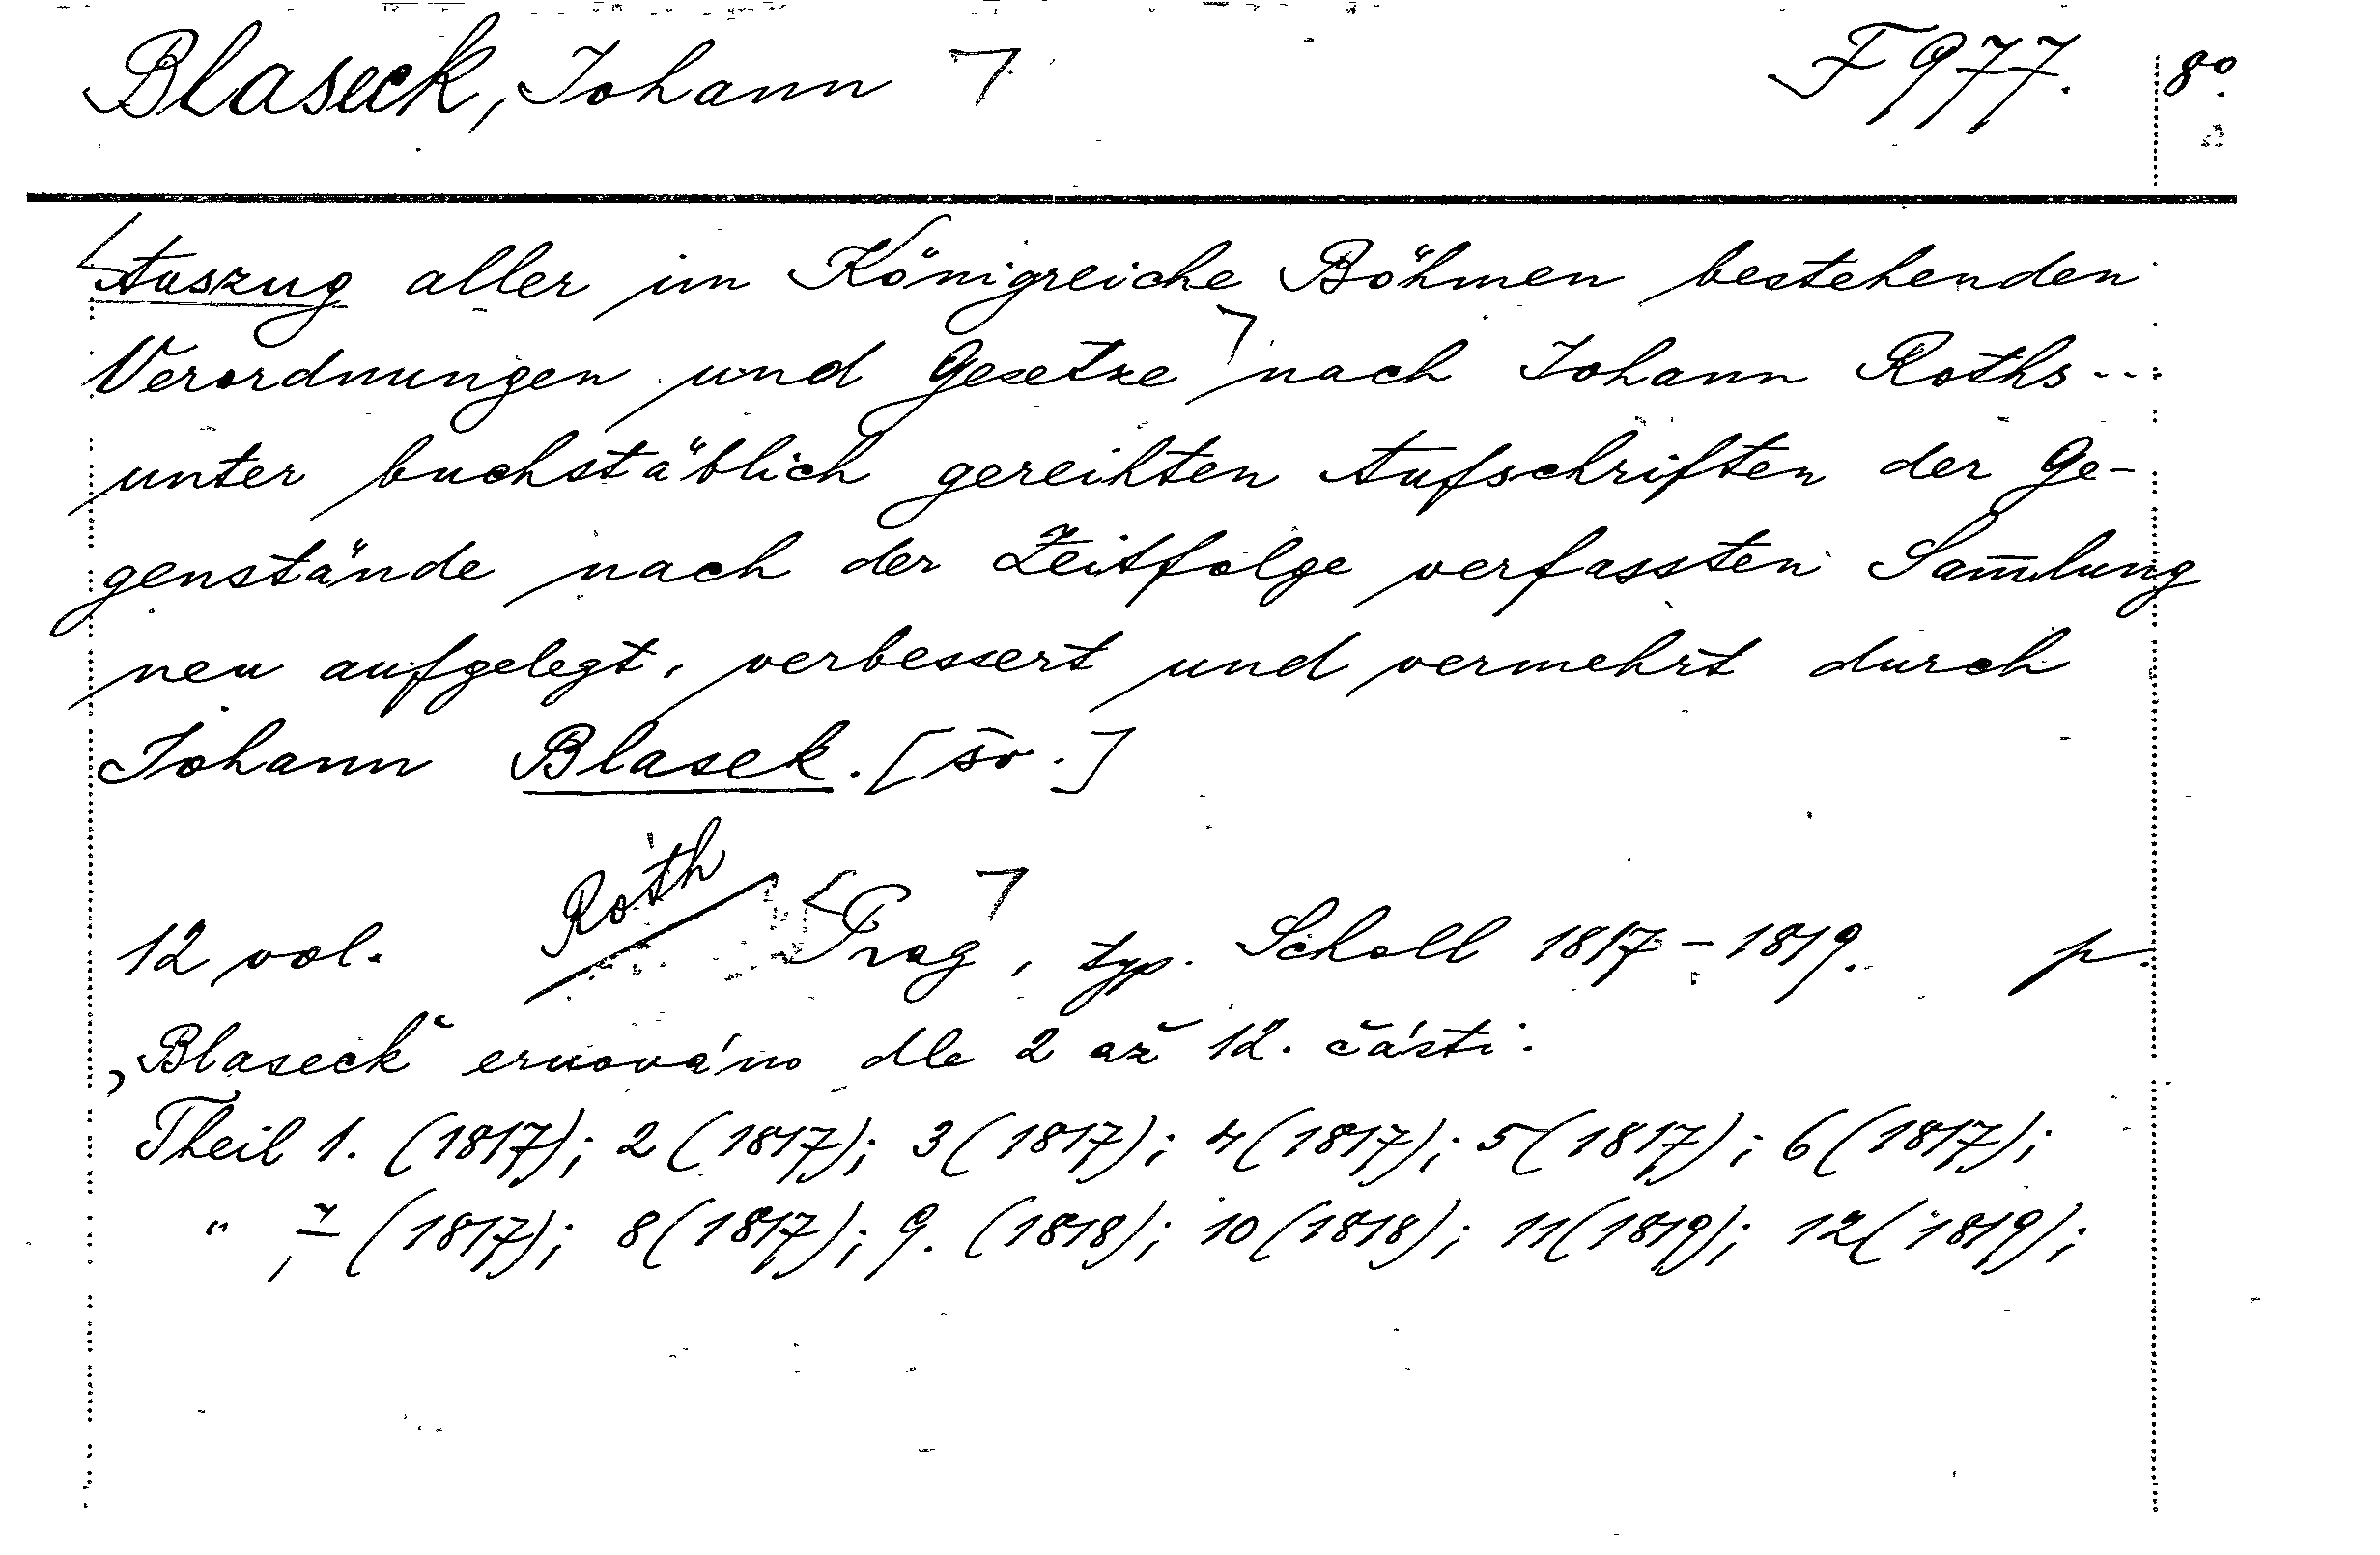 Blaseck, Johann ⌝ F 977. 8°.
Auszug aller im Königreiche Böhmen bestehenden
Verordnungen und Gesetze ⌝ nach Johann Roths ...
unter buchstäblich gereihten Aufschriften der Ge-
genstände nach der Zeitfolge verfassten Sam̅lung
neu aufgelegt, verbessert und vermehrt durch
Johann Blasek. [
Roth
12 vol. Prag ⌝, typ. Scholl 1817 – 1819. p.
„Blaseck“ dle 2 až 12. části.
Theil 1. (1817); 2 (1817); 3 (1817); 4 (1817); 5 (1817); 6 (1817);
" 7 (1817); 8 (1817); 9. (1818); 10 (1818); 11 (1819); 12 (1819);